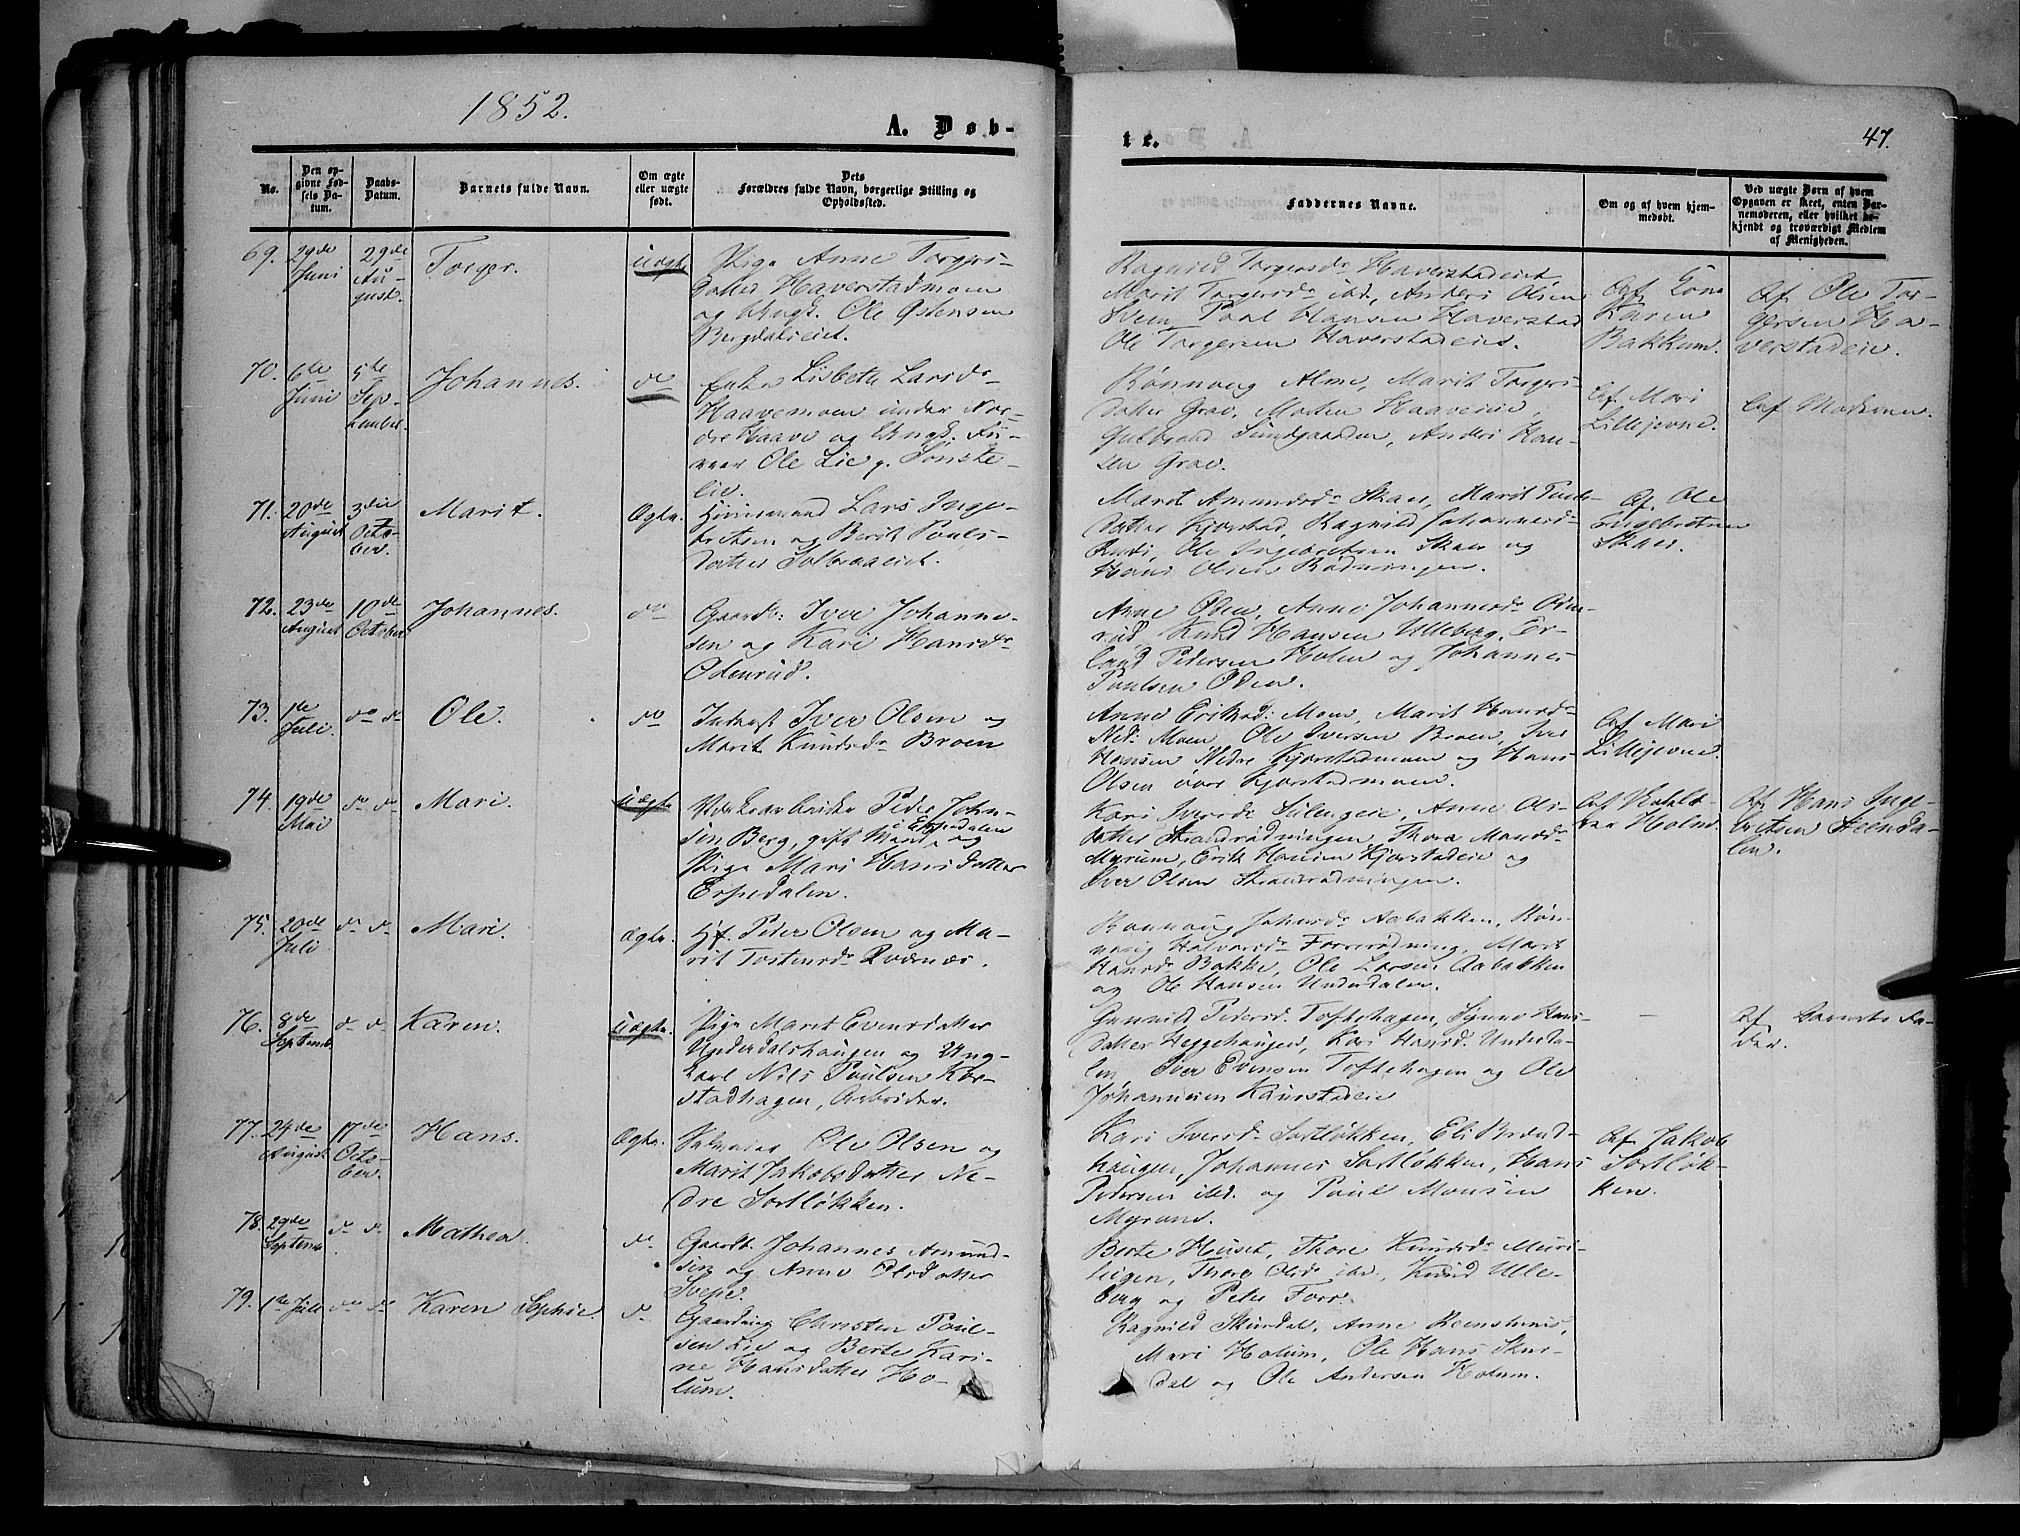 1852.
A. Døb-
te.
47.
No.
Den op-
givne Fød-
sels Da-
tum.
Daabs-
Datum.
Barnets fulde Navn.
Om ægte
eller uægte
født.
Dets
Forældres fulde Navn, borgerlige Stilling og
Opholdssted.
Faddernes Navne.
Om og af hvem hjem-
medøbt.
Ved uægte Børn af hvem
Opgaven er skeet, enten Bar-
nemoderen, eller hvilket be-
kjendt og troværdigt Medlem
af Menigheden.
69. 29de Juni
29de August.
Torger.
Uægte
Pige Anne Torgers-
datter Haverstadmoen
og Ungk. Ole Østensen
Bergdalseiet.
Ragnild Torgersdr Haverstadeiet
Marit Torgersdr ibd, Anders Olsen
Poul Hansen Haverstad
Ole Torgersen Haverstadeiet.
Af
Karen
Bakkum.
Af Ole Tor-
gersen Ha-
verstadeie.
70. 6te Juni
5te September
Johannes.
do
Enke Lisbeth Larsdr
Haavemoen under Nor-
dre Haave og Ungk.
Ole Lie
lie.
Rønnoug Alme, Marit Torgers-
datter Grav, Haaveeie,
Gulbrand Sundgaarden, Anders Han-
sen Grav.
Af Mari
Lillejevne.
Af Moderen.
71. 20de August
3die October.
Marit.
Ægte.
Huusmand Lars Inge-
bretsen og Berit Pouls-
datter Solbraaeiet.
Marit Amundsdr Skaar, Marit
datter Kjorstad, Ragnild Johannesd-
Ole Ingebretsen Skaar og
Hans Olsen Rødningen.
Af Ole
Ingebretsen
Skaar.
72. 23de August
10de October
Johannes.
do
Gaardb: Iver Johanne-
sen og Kari Hansdr
Odenrud.
Anne Oden, Anne Johannesdr Oden-
rud, Knud Hansen Ulleberg, Er-
land Pedersen Holen og Johannes
Poulsen Oden.
73. 1te Juli.
do do
Ole.
do
Inderst Iver Olsen og
Marit Knudsdr Broen
Anne Eriksd: Moen, Marit Hansdr
Ned: Moen, Ole Iversen Broen, Iver
Hansen Nedre Kjorstadmoen og Hans
Olsen øvre Kjorstadmoen.
Af Mari
Lillejevne.
74. 19de Mai
do do
Mari.
Uægte
Peder John-
sen Berg, gift Mand i Espedalen og
Pige Mari Hansdatter
Espedalen.
Kari Iversdr Sülengeie, Anne Ols-
datter Strandrødningen, Thora Monsdr
Myrum, Erik Hansen Kjorstadeie og
Iver Olsen Strandrødningen.
Af
Holm.
Af Hans Inge-
bretsen Steenda-
len.
75. 20de Juli
do do
Mari.
Ægte.
Peder Olsen og Ma-
rit Tostensdr
Rønnoug Johansdr Aabakken, Røn-
noug Halvorsdr Forrerødning, Marit
Hansdr Bakke, Ole Larsen Aabakken
og Ole Hansen Underdalen.
76. 8de Septemb.
do do
Karen.
Uægte.
Pige Marit Evensdatter
Underdalshaugen og Ung-
karl Nils Poulsen Kor-
stadhagen, Arbeider.
Gunnild Pedersd. Toftehagen, Synne Hans-
datter Heggehaugen, Kari Hansd. Underda-
len, Iver Evensen Toftehagen og Ole
Johannesen Kaurstadeie
Af Barnets Fa-
der.
77. 24de August
17de October.
Hans.
Ægte.
Ole Olsen og
Marit Jakobsdatter Ne-
dre Sortløkken.
Kari Iversdr Sortløkken, Eli Brænd-
haugen, Johannes Sortløkken, Hans
Pedersen ibd. og Poul Monsen
Myrum.
Af Jakob
Sortløk-
ken.
78. 29de Septemb.
do do
Mathea.
do
Gaardb. Johannes Amund-
sen og Anne Olsdatter
Sveje.
Berte Huset, Thore Knudsdr
Thore Olsdr ibd, Knud Ulle-
berg og Peder Forr.
79. 1te Juli
do do
Karen Sophie.
do
Christen Poul-
sen Lie og Berte Kari-
ne Hansdatter Ho-
lum.
Ragnild Skurdal, Anne
Mari Holum, Ole Hans Skur-
dal og Ole Andersen Holum.